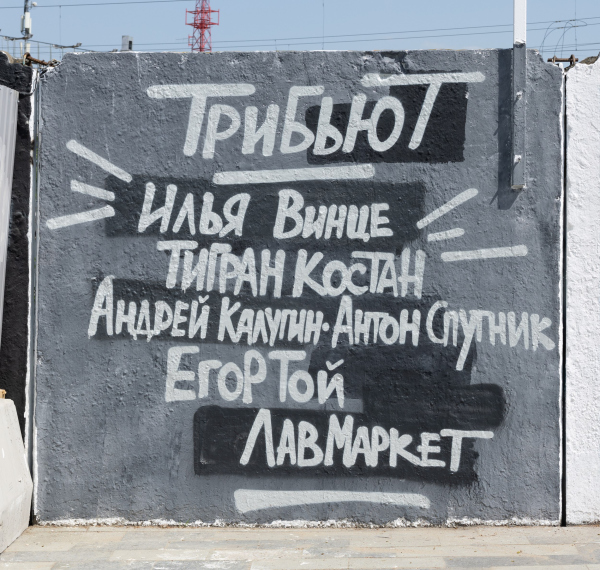 ТРИБЬЮТ
ИЛЬЯ ВИНЦЕ
ТИГРАН КОСТАН
АНДРЕЙ КАЛУГИН·АНТОН СПУТНИК
ЕГОР ТОЙ
ЛАВ МАРКЕТ